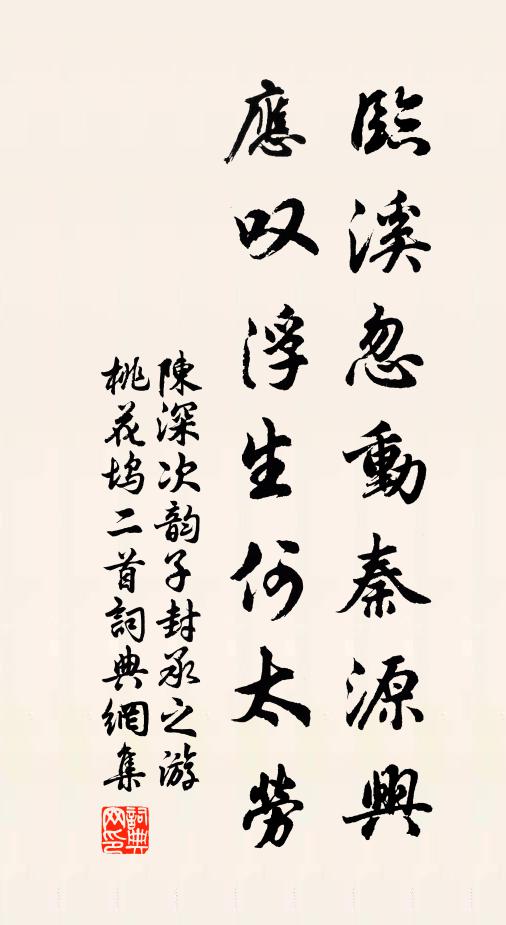 臨溪忽動秦源興
應叹浮生何太勞
陳深次韵子封承之游
桃花塢二首詞典網集
詞典
网印